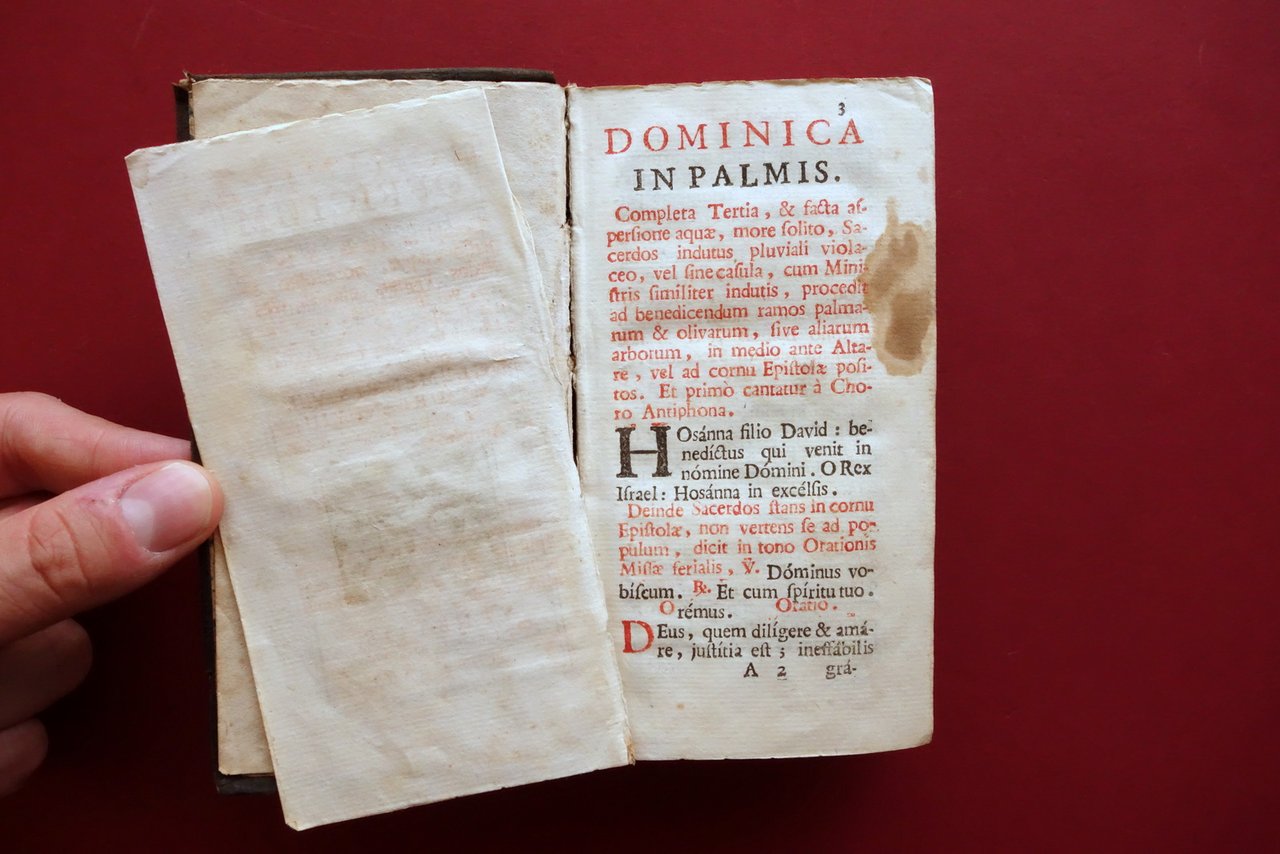 3
DOMINICA
IN PALMIS.
Completa Tertia, & facta aſ-
perſione aquæ, more ſolito, Sa-
cerdos indutus pluviali viola-
ceo, vel ſine caſula, cum Mini-
ſtris ſimiliter indutis, procedit
ad benedicendum ramos palma-
rum & olivarum, ſive aliarum
arborum, in medio ante Alta-
re, vel ad cornu Epiſtolæ poſi-
tos. Et primò cantatur à Cho-
ro Antiphona.
HOsánna filio David: be-
nedíctus qui venit in
nómine Dómini. O Rex
Iſrael: Hosánna in excélſis.
Deinde Sacerdos ſtans in cornu
Epiſtolæ, non vertens ſe ad po-
pulum, dicit in tono Orationis
Miſſæ ferialis, ℣. Dóminus vo-
bíſcum. ℟. Et cum ſpíritu tuo.
Orémus. Oratio.
DEus, quem dilígere & amá-
re, juſtítia eſt; ineffábilis
A 2 grá-